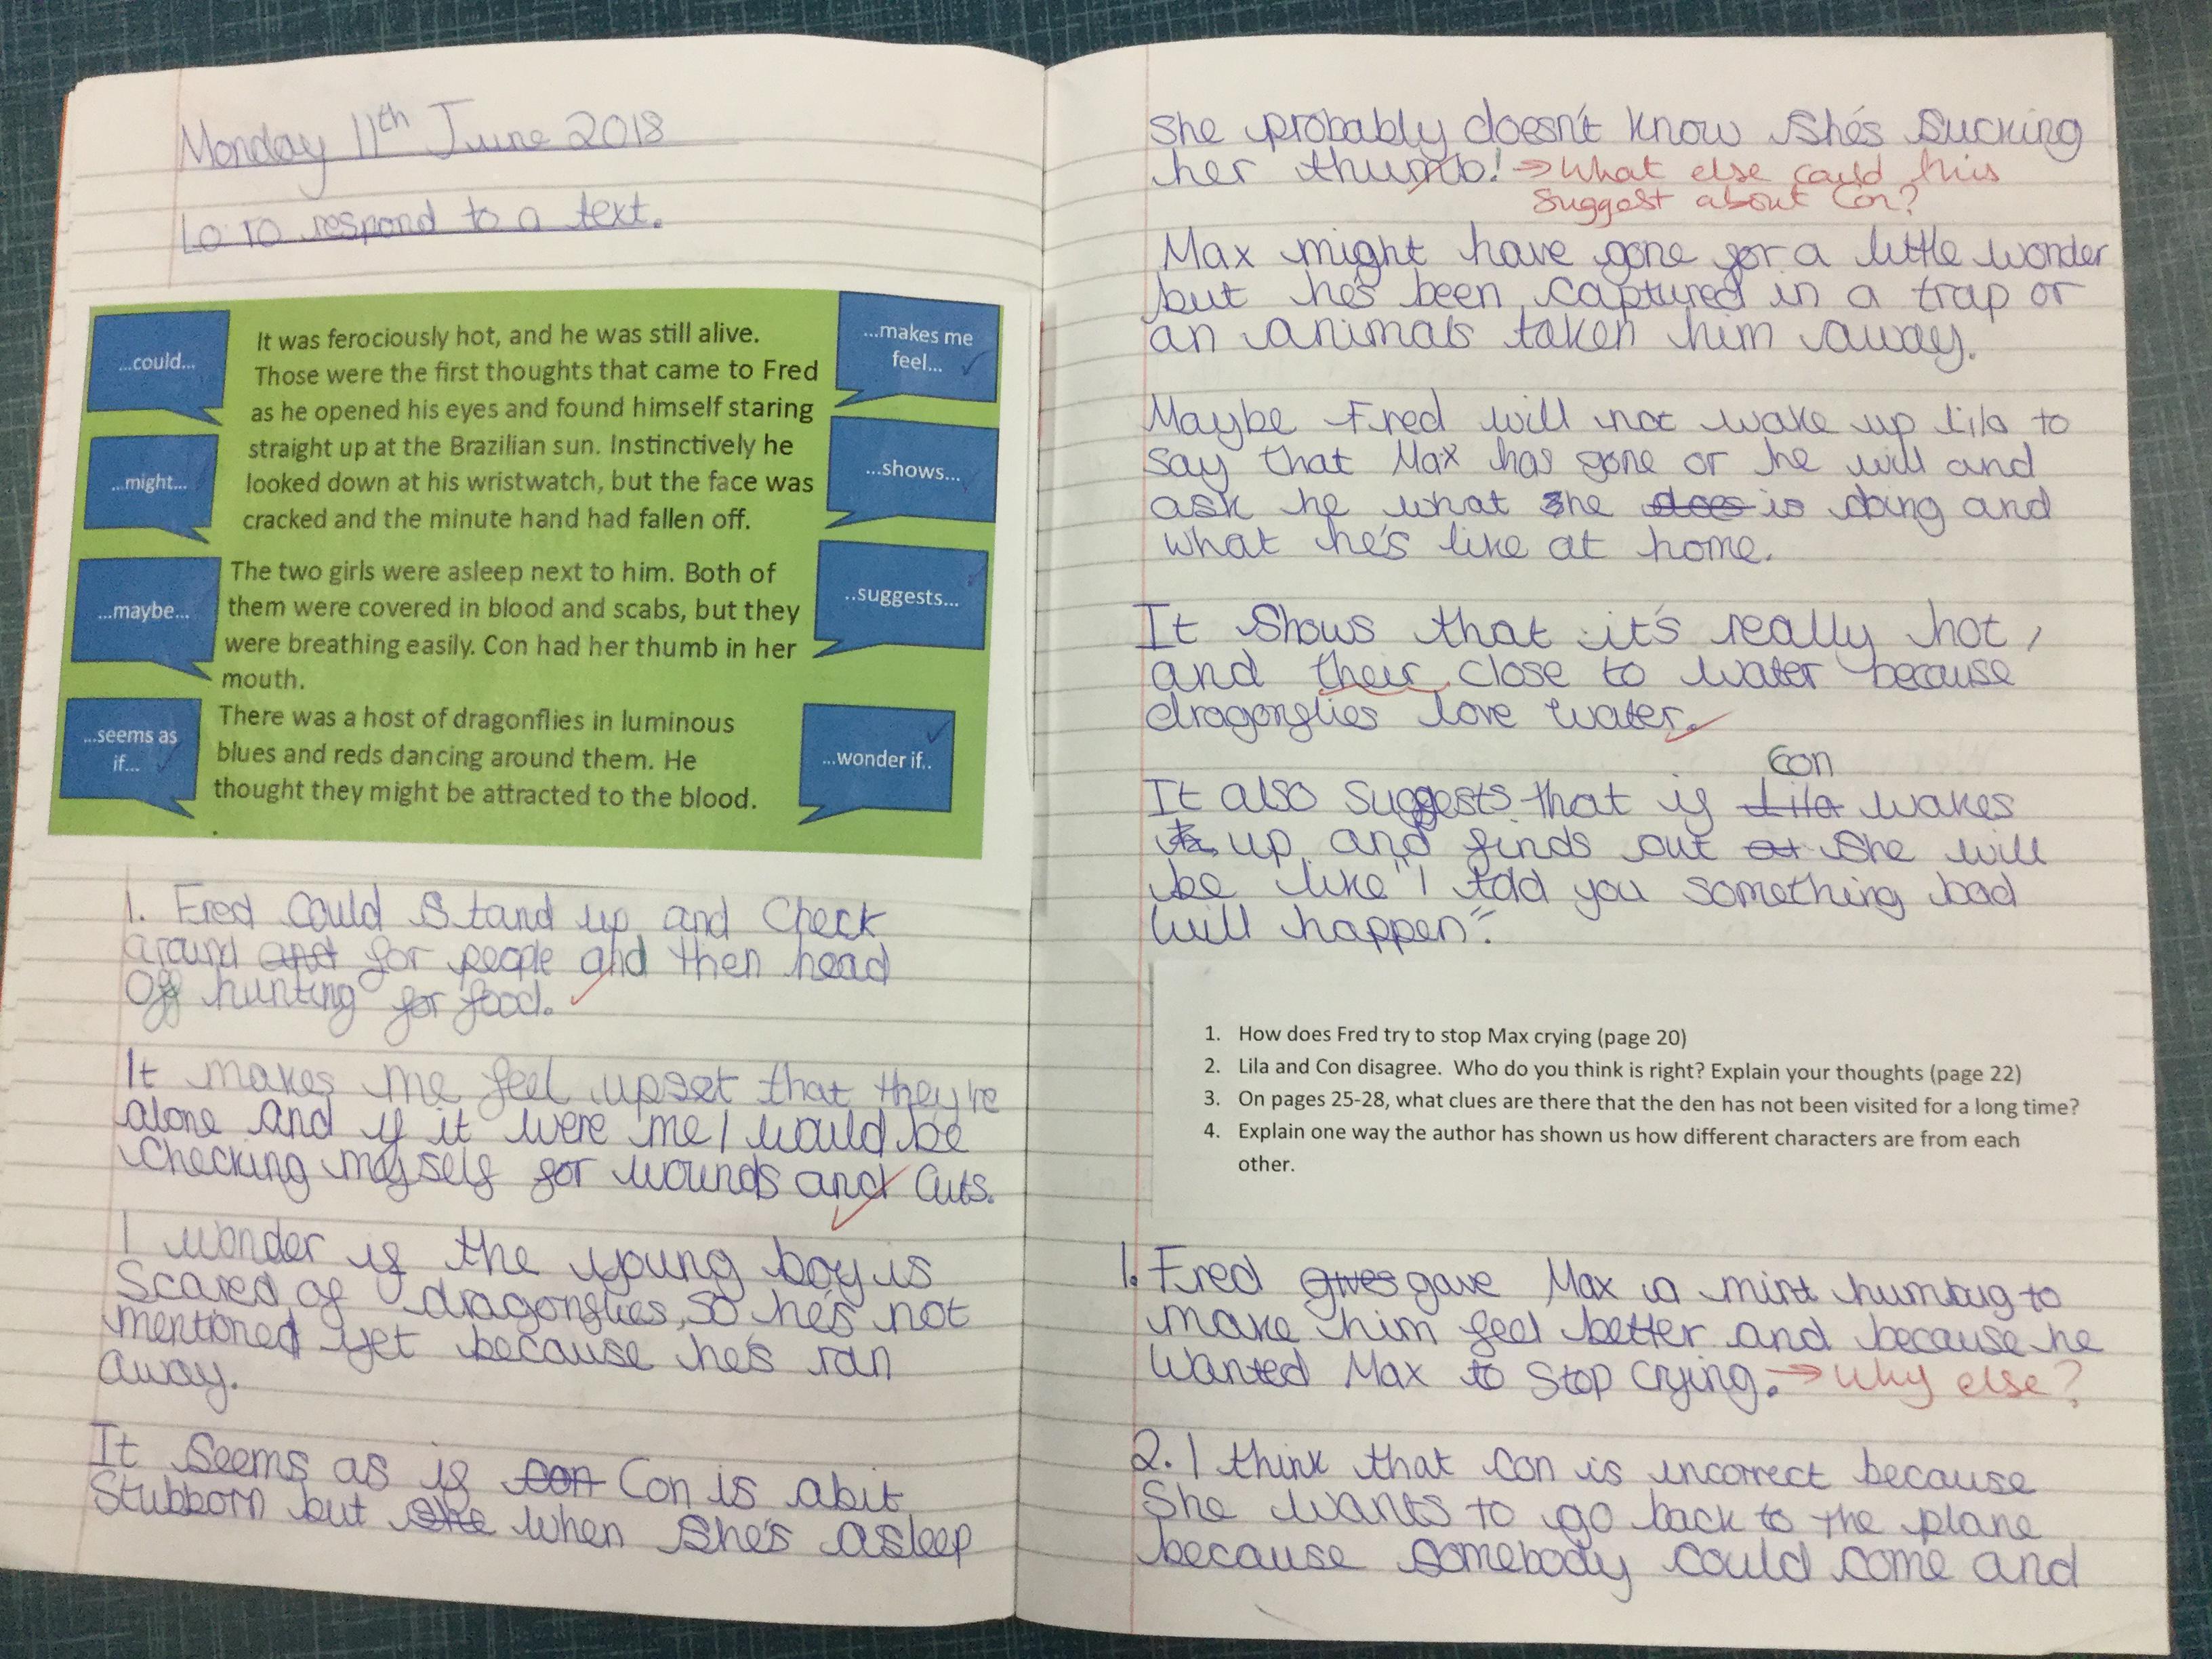 Monday 11th June 2018
Lo: To respond to a text.
...could...
...might...
...maybe...
...seems as
if...
It was ferociously hot, and he was still alive.
Those were the first thoughts that came to Fred
as he opened his eyes and found himself staring
straight up at the Brazilian sun. Instinctively he
looked down at his wristwatch, but the face was
cracked and the minute hand had fallen off.
The two girls were asleep next to him. Both of
them were covered in blood and scabs, but they
were breathing easily. Con had her thumb in her
mouth.
There was a host of dragonflies in luminous
blues and reds dancing around them. He
thought they might be attracted to the blood.
...makes me
feel...
...shows...
..suggests...
...wonder if..
1. Fred could stand up and check
around and for people and then head
off hunting for food.
It makes me feel upset that they're
alone and if it were me I would be
checking myself for wounds and cuts.
I wonder if the young boy is
scared of dragonflies, so he's not
mentioned yet because he's ran
away.
It seems as if con Con is abit
stubborn but she when she's asleep
she probably doesn't know she's sucking
her thumb! → What else could this
suggest about Con?
Max might have gone for a little wonder
but he's been captured in a trap or
an animals taken him away.
Maybe Fred will not wake up Lila to
say that Max has gone or he will and
ask he what she does is doing and
what he's like at home.
It shows that it's really hot,
and their close to water because
dragonflies love water.
Con
It also suggests that if Lila wakes
up and finds out she will
be like "I told you something bad
will happen".
1. How does Fred try to stop Max crying (page 20)
2. Lila and Con disagree. Who do you think is right? Explain your thoughts (page 22)
3. On pages 25-28, what clues are there that the den has not been visited for a long time?
4. Explain one way the author has shown us how different characters are from each
other.
1. Fred gives gave Max a mint humbug to
make him feel better and because he
wanted Max to stop crying. → Why else?
2. I think that Con is incorrect because
she wants to go back to the plane
because somebody could come and